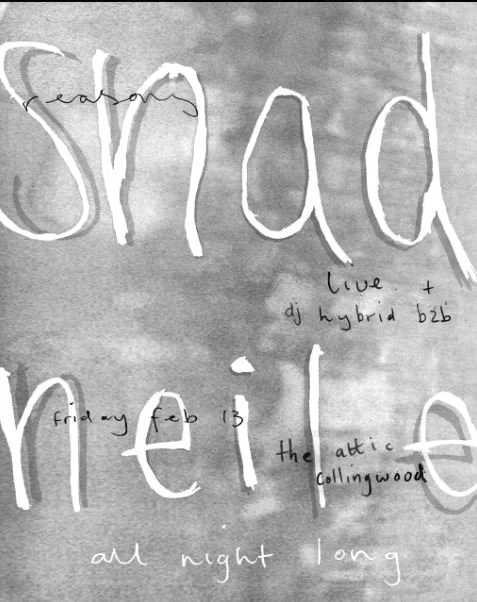 reasons
snad
live + 
dj hybrid b2b
neile
friday feb 13
the attic
collingwood
all night long